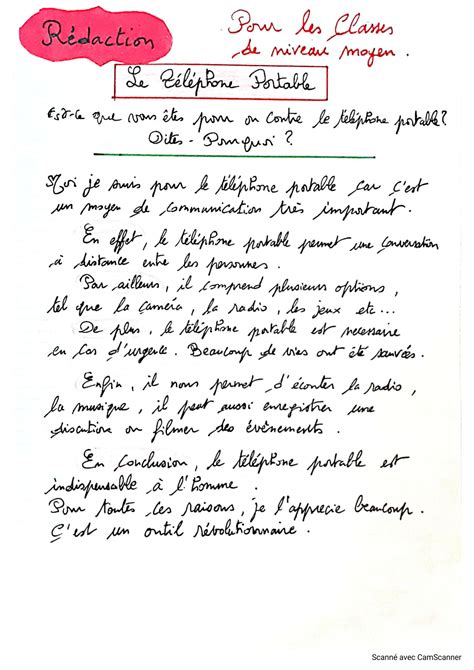 Rédaction
Pour les Classes
de niveau moyen.
Le Téléphone Portable
Est-ce que vous êtes pour ou contre le téléphone portable?
Dites-Pourquoi?
Moi je suis pour le téléphone portable car c'est
un moyen de communication très important.
En effet, le téléphone portable permet une conversation
à distance entre les personnes.
Par ailleurs, il comprend plusieurs options,
tel que la caméra, la radio, les jeux etc...
De plus, le téléphone portable est necessaire
en cas d'urgence. Beaucoup de vies ont été sauvés.
Enfin, il nous permet d'écouter la radio,
la musique, il peut aussi enregistrer une
discution ou filmer des événements.
En conclusion, le téléphone portable est
indispensable à l'homme.
Pour toutes ces raisons, je l'apprecie beaucoup.
C'est un outil révolutionnaire.
Scanné avec CamScanner